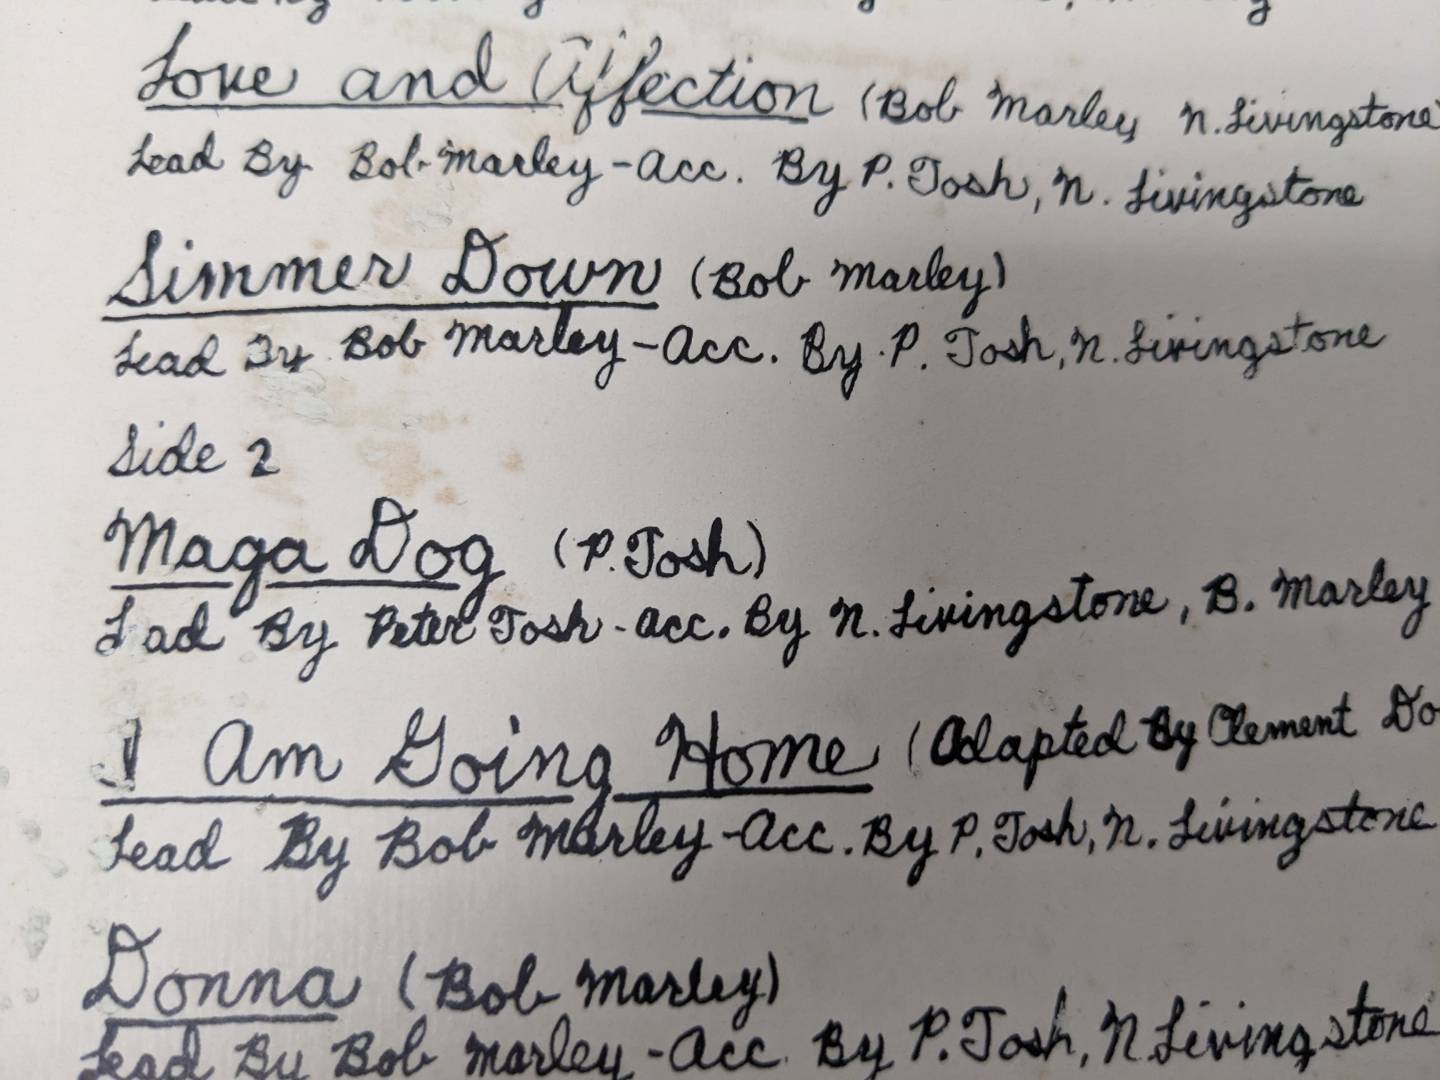 Love and Affection (Bob Marley N. Livingstone
Lead By Bob Marley - Acc. By P. Tosh, N. Livingstone
Simmer Down (Bob Marley)
Lead By Bob Marley - Acc. By P. Tosh, N. Livingstone
Side 2
Maga Dog (P. Tosh)
Lead By Peter Tosh - Acc. By N. Livingstone, B. Marley
I Am Going Home (Adapted By Clement Do
Lead By Bob Marley - Acc. By P. Tosh, N. Livingstone
Donna (Bob Marley)
Lead By Bob Marley - Acc. By P. Tosh, N. Livingstone